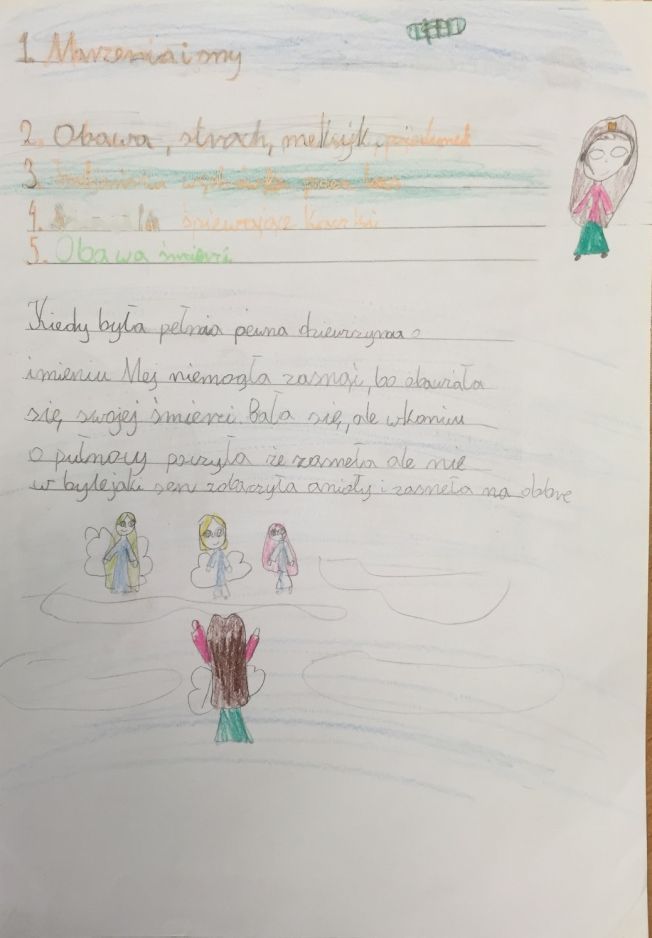 1. Marzenia i sny
2. Obawa, strach, meksyk,
3. las
4. śpiewające
5. Obawa śmierci
Kiedy była pełnia pewna dziewczyna o
imieniu Mej niemogła zasnąć, bo obawiała
się swojej śmierci. Bała się, ale wkońcu
o pułnocy poczyła że zasneła ale nie
w bylejaki sen zobaczyła anioły i zasneła na dobre